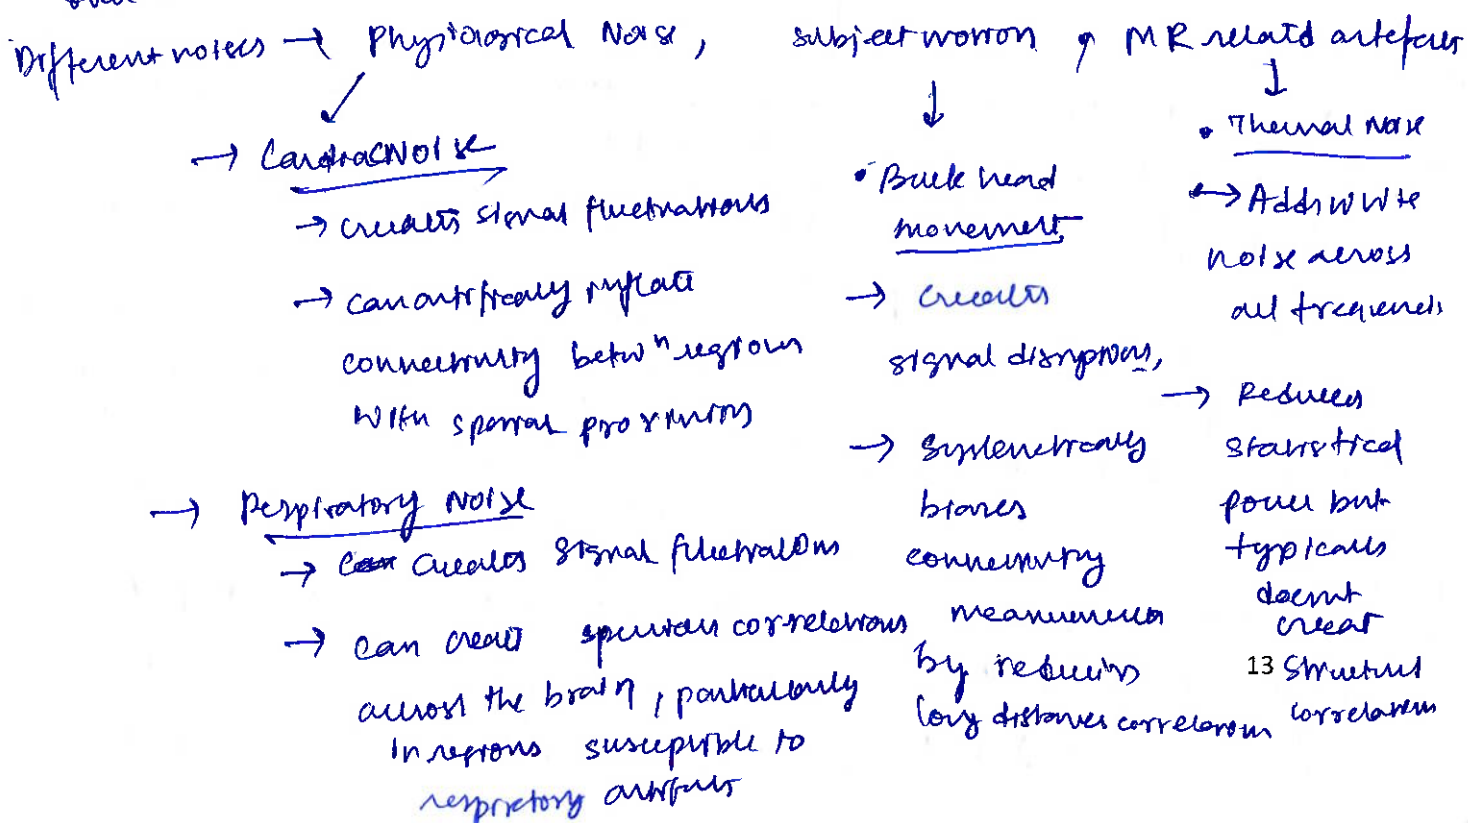 Different noises → Physiological Noise, subject motion, MR related artefacts
→ Cardiac Noise
→ creates signal fluctuations
→ can artificially inflate
connectivity betwn regions
with spatial proximity
→ Respiratory Noise
→ Creates signal fluctuations
→ can create spurious correlations
across the brain, particularly
in regions susceptible to
respiratory artifacts
• Bulk head
movement
→ creates
signal disruptions,
→ Systematically
biases
connectivity
measurements
by reducing
long distances correlations
• Thermal Noise
→ Adds white
noise across
all frequencies
→ Reduces
statistical
power but
typically
doesnt
creat
13 Structured
correlations